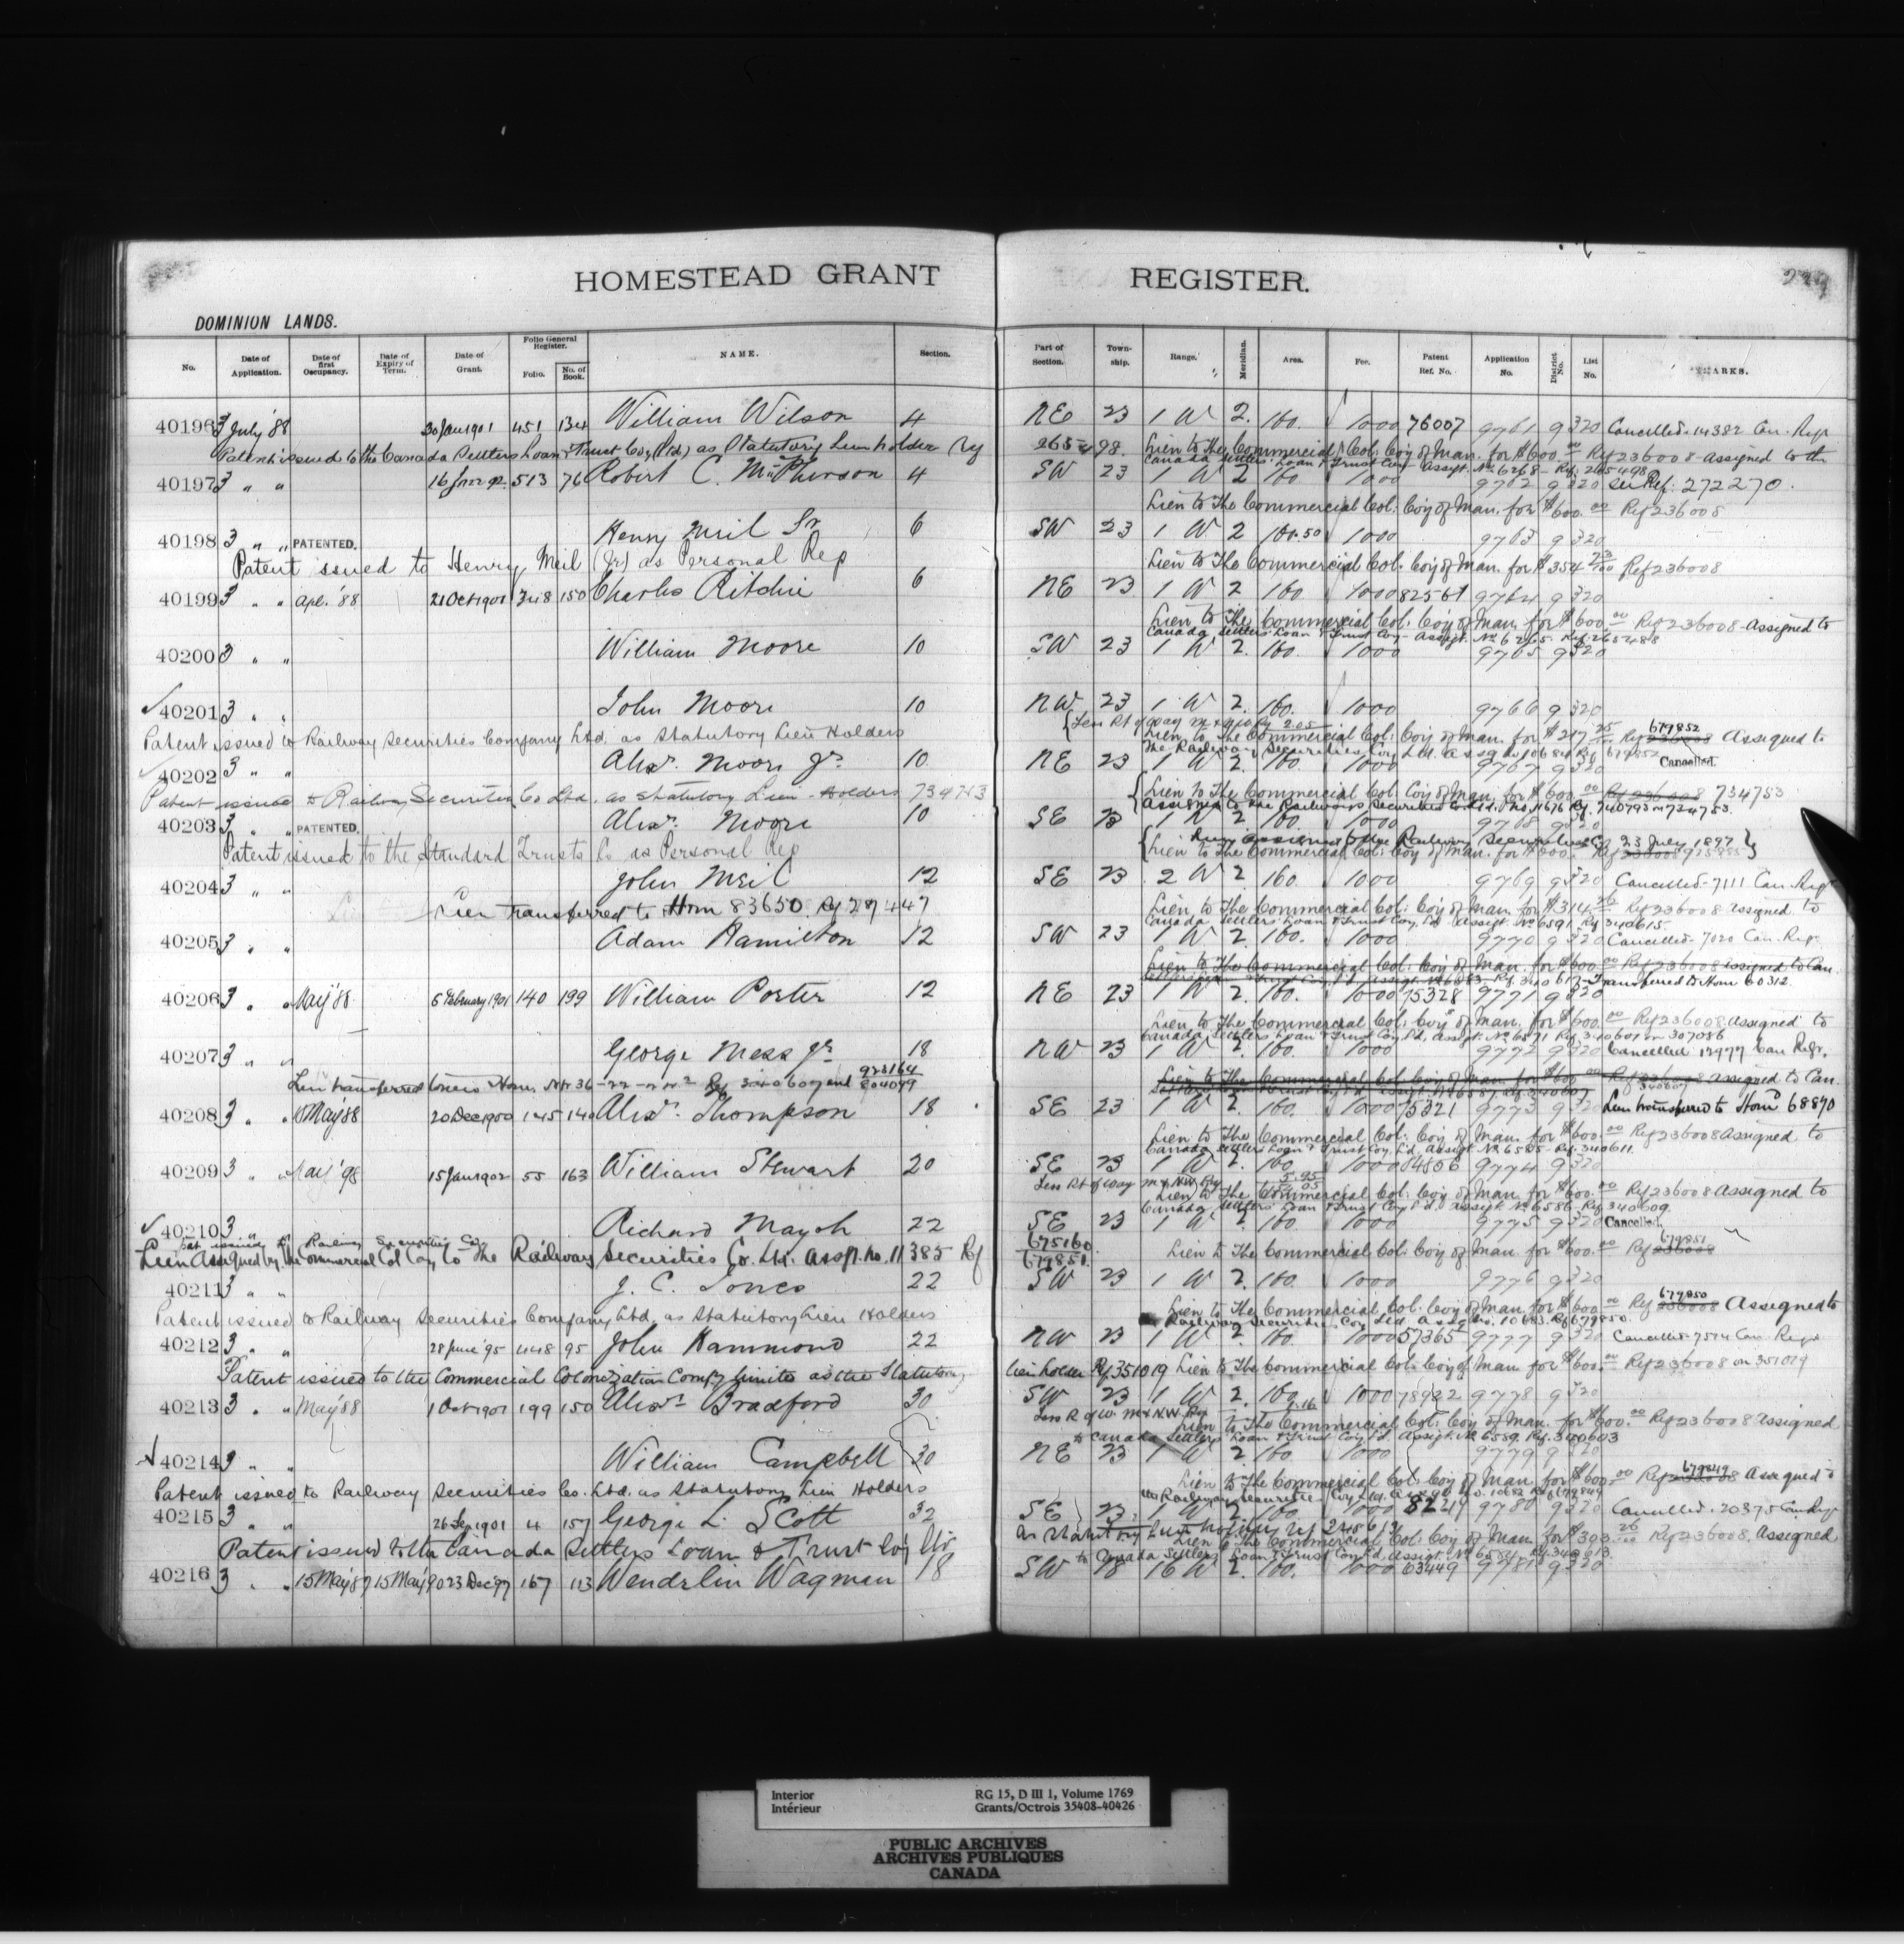 HOMESTEAD GRANT REGISTER.
DOMINION LANDS.
No. Date of Application. Date of first Occupancy. Date of Expiry of Term. Date of Grant. Folio General Register. Folio. No. of Book. NAME. Section. Part of Section. Township. Range. Meridian. Area. Fee. Patent Ref. No. Application No. District No. List No.
40196 3 July '88 30 Jan 1901 451 134 William Wilson 4 NE 23 1 W 2. 160. 1000 76007 9761 9 320 Cancelled. 14382 Can. Regr
Patent issued to the Canada Settlers Loan & Trust Coy (Ltd) as Statutory Lien holder Ref 265498. Lien to The Commercial Col: Coy of Man. for $600.00 Ref 236008 - Assigned to the
Canada Settlers Loan & Trust Coy - Assigt. No 6268 - Ref. 265498
40197 3 " " 513 76 Robert C. McPherson 4 SW 23 1 W 2 160 1000 9762 9 320 See Ref: 272270.
Lien to The Commercial Col: Coy of Man. for $600.00 Ref 236008
40198 3 " " PATENTED. Henry Meil Sr 6 SW 23 1 W 2 160.50 1000 9763 9 320
Patent issued to Henry Meil (Jr) as Personal Rep Lien to The Commercial Col: Coy of Man. for $354 73/100 Ref 236008
40199 3 " " Apl. '88 21 Oct 1901 348 150 Charles Ritchie 6 NE 23 1 W 2 160 1000 82561 9764 9 320
Lien to The Commercial Col: Coy of Man. for $600.00 Ref 236008 - Assigned to
Canada Settlers Loan & Trust Coy - Assigt. No 6265. Ref. 265488
40200 3 " " William Moore 10 SW 23 1 W 2. 160. 1000 9765 9 320
40201 3 " " John Moore 10 NW 23 1 W 2. 160. 1000 9766 9 320
Less Rt of Way M & NW Ry 2.05
Patent issued to Railway Securities Company Ltd. as Statutory Lien Holders Lien to The Commercial Col: Coy of Man. for $217 Ref 236008 679852 Assigned to
The Railway Securities Coy Ltd. 679852
40202 3 " " Alexr. Moore Jr 10 NE 23 1 W 2. 160. 1000 9767 9 320 Cancelled.
Patent issued to Railway Securities Co Ltd. as Statutory Lien Holders 734753 Lien to The Commercial Col: Coy of Man. for $600.00 Ref 236008 734753
40203 3 " " PATENTED. Alexr. Moore 10 SE 23 1 W 2. 160. 1000 9768 9 320
Patent issued to the Standard Trusts Co as Personal Rep Lien to The Commercial Col: Coy of Man. for $600. 23 July 1897
40204 3 " " John Meil 12 SE 23 2 W 2 160. 1000 9769 9 320 Cancelled - 7111 Can. Regr
Lien transferred to Hom 83650. Ref 287447 Lien to The Commercial Col: Coy of Man. for $314 Ref 236008 Assigned to
Canada Settlers Loan & Trust Coy Ld Assigt. No 6591 - Ref 340615.
40205 3 " " Adam Hamilton 12 SW 23 1 W 2. 160. 1000 9770 9 320 Cancelled - 7020 Can. Regr.
Lien to The Commercial Col: Coy of Man. for $600.00 Ref 236008 Assigned to Can.
Transferred to Hom 60312.
40206 3 " " May '88 6 February 1901 140 199 William Porter 12 NE 23 1 W 2. 160. 1000 75328 9771 9 320
Lien to The Commercial Col: Coy of Man. for $600.00 Ref 236008 Assigned to
Canada Settlers Loan & Trust Coy Ld, Assigt. No 6571 Ref 340601 on 307086
40207 3 " " George Mess Jr 18 NW 23 1 W 2. 160. 1000 9772 9 320 Cancelled 12977 Can Regr.
Lien transferred Hom. NW 36-22-2 W2 Ref 340607 and 923164 804099 Lien to The Commercial Col: Coy of Man. for $600.00 Ref 236008 Assigned to Can.
40208 3 " " 15 May '88 20 Dec 1900 145 149 Alexr. Thompson 18 SE 23 1 W 2. 160. 1000 75321 9773 9 320 Lien transferred to Homd 68870
Lien to The Commercial Col: Coy of Man. for $600.00 Ref 236008 Assigned to
Canada Settlers Loan & Trust Coy Ld, Assigt No 6585 - Ref. 340611.
40209 3 " " 15 Jan 1902 55 163 William Stewart 20 SE 23 1 W 2. 160. 1000 84856 9774 9 320
Less Rt of Way M & NW Ry 5.95 154.05
Lien to The Commercial Col: Coy of Man. for $600.00 Ref 236008 Assigned to
Canada Settlers Loan & Trust Coy Ld. Assigt No 6586 - Ref 340609.
40210 3 " " Richard Mayoh 22 SE 23 1 W 2. 160. 1000 9775 9 320 Cancelled.
Pat issued to Railway Securities Co. 675160
Lien Assigned by the Commercial Col Coy to The Railway Securities Co. Ltd. Assgt. No. 11385 Ref 679851. Lien to The Commercial Col: Coy of Man. for $600.00 Ref 236008 679851
40211 3 " " J. C. Jones 22 SW 23 1 W 2. 160. 1000 9776 9 320
Patent issued to Railway Securities Company Ltd. as Statutory Lien Holders Lien to The Commercial Col: Coy of Man. for $600.00 Ref 236008 679850 Assigned to
Railway Securities Coy Ltd. Assg No. 10683. Ref 679850.
40212 3 " " 28 June '95 448 95 John Hammond 22 NW 23 1 W 2. 160. 1000 57365 9777 9 320 Cancelled - 7514 Can. Regr
Patent issued to the Commercial Colonization Compy limited as the Statutory lien holder Ref 351019 Lien to The Commercial Col: Coy of Man for $600.00 Ref 236008 on 351019
40213 3 " " May '88 1 Oct 1901 199 150 Alexr. Bradford 30 SW 23 1 W 2. 160. 1000 78922 9778 9 320
Less R of W. M & N.W. Ry
Lien to The Commercial Col: Coy of Man. for $600.00 Ref 236008 Assigned
to Canada Settlers Loan & Trust Coy Ld, Assigt. No 6589. Ref. 340603
40214 3 " " William Campbell 30 NE 23 1 W 2. 160. 1000 9779 9 320
Patent issued to Railway Securities Co. Ltd. as Statutory Lien Holders Lien to The Commercial Col: Coy of Man. for $600.00 Ref 236008 679849 Assigned to
the Railway Securities Coy Ltd. No. 10682 Ref 679849
40215 3 " " 26 Sep 1901 4 157 George L. Scott 32 SE 23. 1 W 2. 160. 1000 82219 9780 9 320 Cancelled. 20375 Can Regr
Patent issued to the Canada Settlers Loan & Trust Coy as Statutory Lien holders
Lien to The Commercial Col: Coy of Man. for $393 Ref 236008. Assigned
to Canada Settlers Loan & Trust Coy Ld, Assigt. No
40216 3 " " 15 May '87 15 May '90 23 Dec '97 167 113 Wendelin Wagman 18 SW 18 16 W 2. 160. 1000 63449 9781 9 320
Interior RG 15, D III 1, Volume 1769
Intérieur Grants/Octrois 35408-40426
PUBLIC ARCHIVES
ARCHIVES PUBLIQUES
CANADA